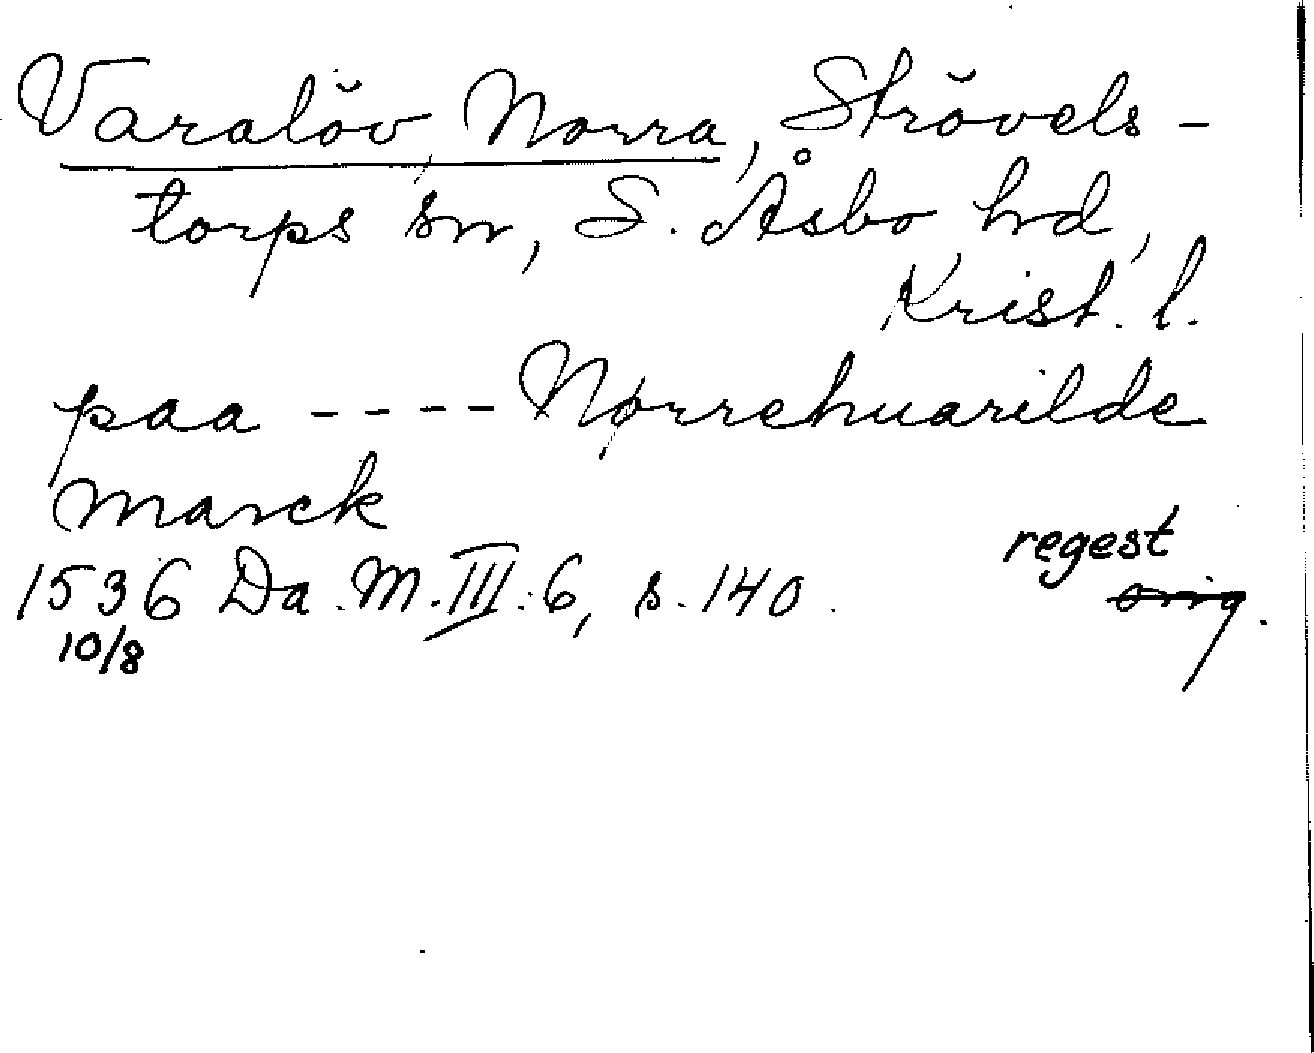 Varalöv, Norra, Strövels-
torps sn, S. Åsbo hd,
Krist. l.
paa ---- Nørrehuarilde
marck
regest
1536 Da. M. III. 6, s. 140. orig.
10/8